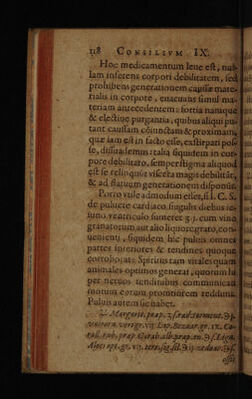 118 CONSILIVM IX.
Hoc medicamentum leue est, nul-
lam inferens corpori debilitatem, sed
prohibens generationem causæ mate-
rialis in corpore, euacuans simul ma-
teriam antecedentem: fortia nanque
& electiue purgantia, quibus aliqui pu-
tant causam coniunctam & proximam,
quæ iam est in facto esse, exstirpari pos-
se, dissuademus: talia siquidem in cor-
pore debilitato, semper stigma aliquod
est se relinquūt viscera magis debilitāt,
& ad flatuum generationem disponūt.
Porro vtile admodum esset, si I. C. S.
de puluere cardiaco, singulis diebus ie-
iuno ventriculo sumeret ʒj. cum vino
granatorum aut alio liquore grato, con-
uenienti, siquidem hic puluis omnes
partes superiores & tendines quoque
corroborat: Spiritus tam vitales quam
animales optimos generat, quorum su-
per neruos tendinibus communicati
motum eorum promtiorem reddunt.
Puluis autem sic habet.
♃. Margarit. præp.